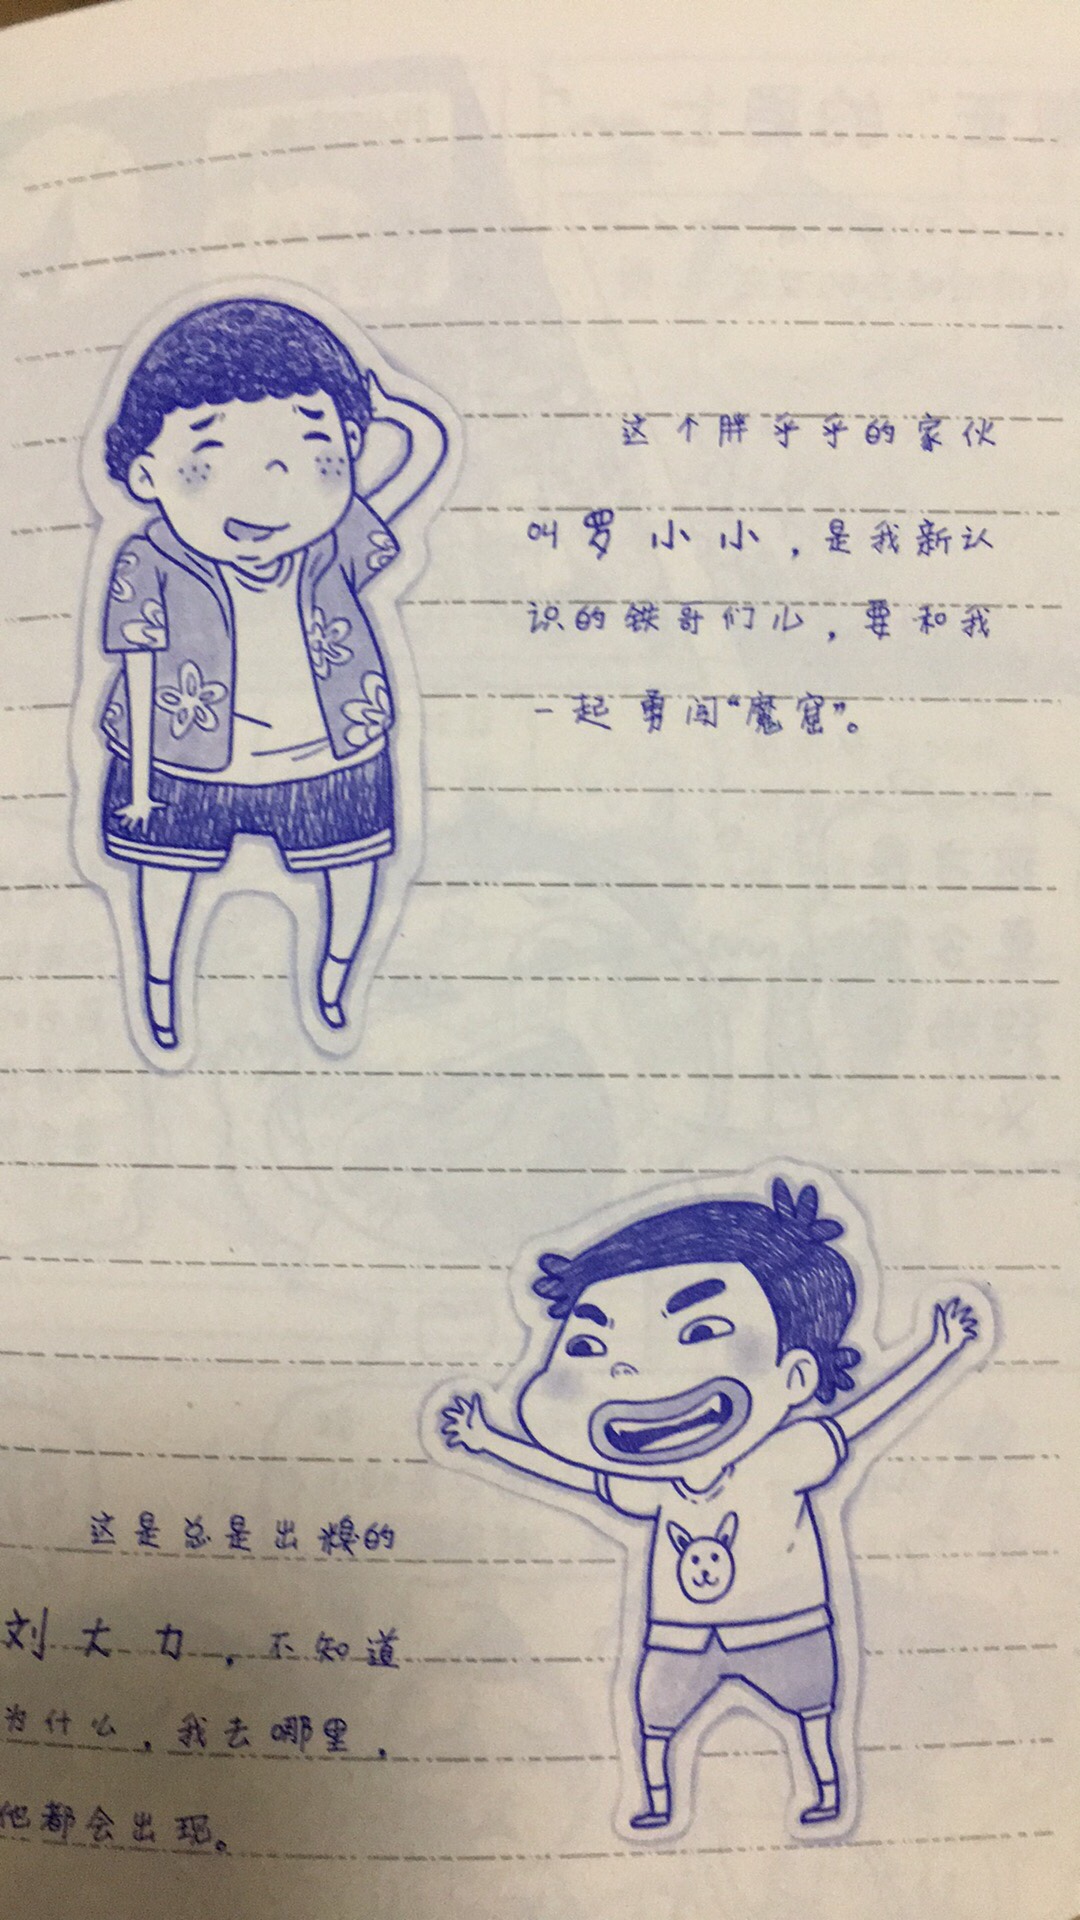 这个胖乎乎的家伙
叫罗小小，是我新认
识的铁哥们儿，要和我
一起勇闯“魔窟”。
这是总是出糗的
刘大力，不知道
为什么，我去哪里，
他都会出现。